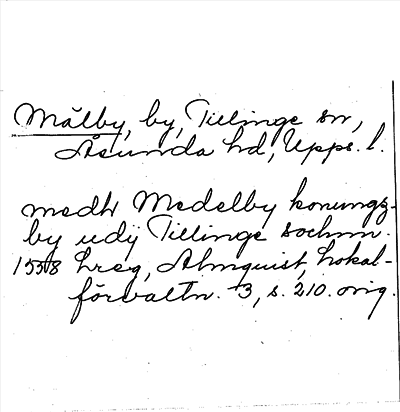 Målby, by, Tillinge sn,
Åsunda hd, Upps. l.
medh Medelby konungz-
by udij Tillinge sochnn.
1558 hreg, Almquist, Lokal-
förvaltn. 3, s. 210. orig.